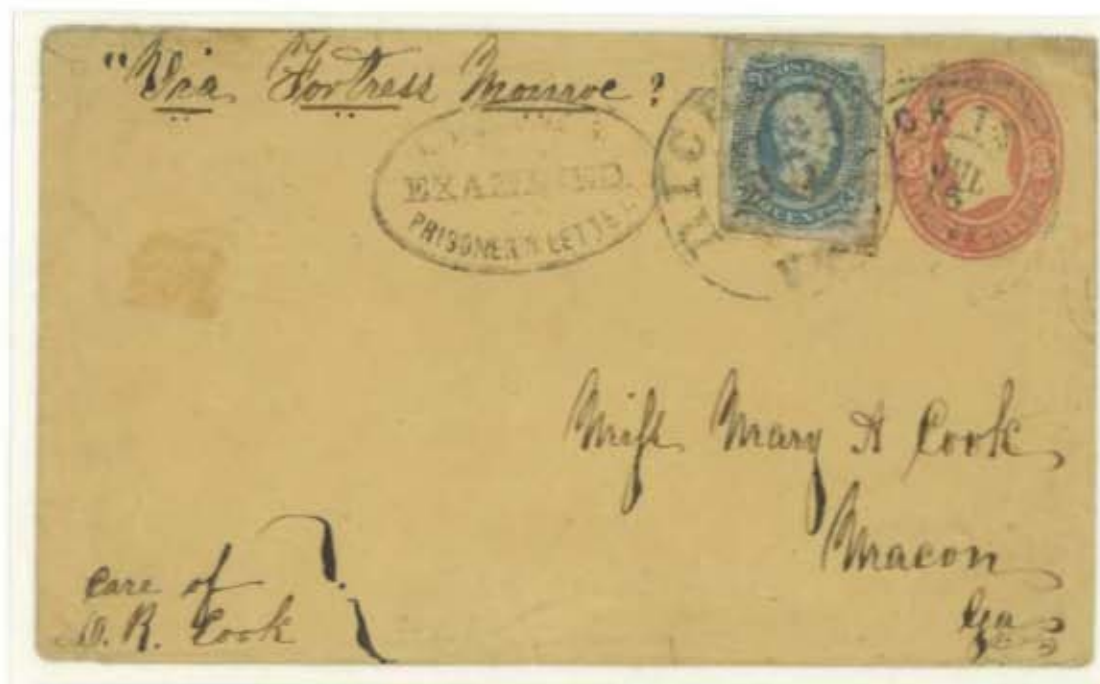 "Via Fortress Monroe"
EXAMINED.
PRISONER'S LETTER
RICH
JUL
Miss Mary A Cook
Macon
Ga
Care of
O. R. Cook